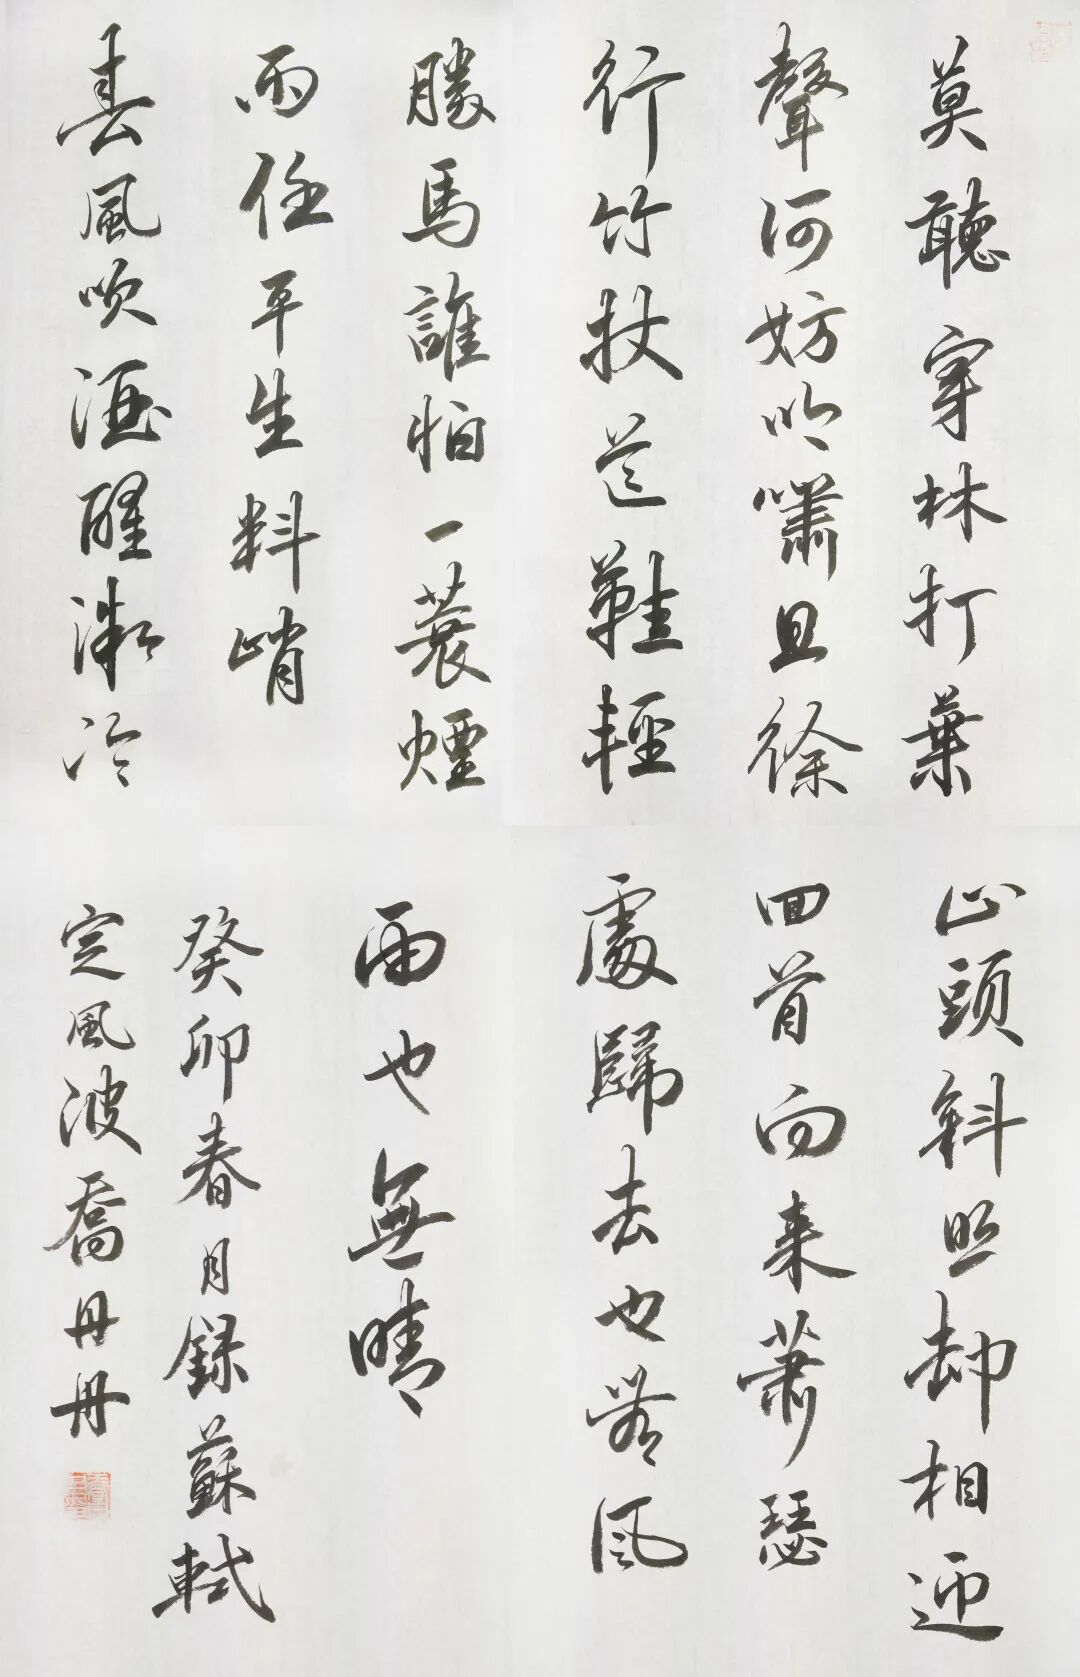 莫聽穿林打葉
聲何妨吟嘯且徐
行竹杖芒鞋輕
勝馬誰怕一蓑煙
雨任平生料峭
春風吹酒醒微冷
山頭斜照却相迎
回首向来蕭瑟
處歸去也無風
雨也無晴
癸卯春月録蘇軾
定風波喬丹丹